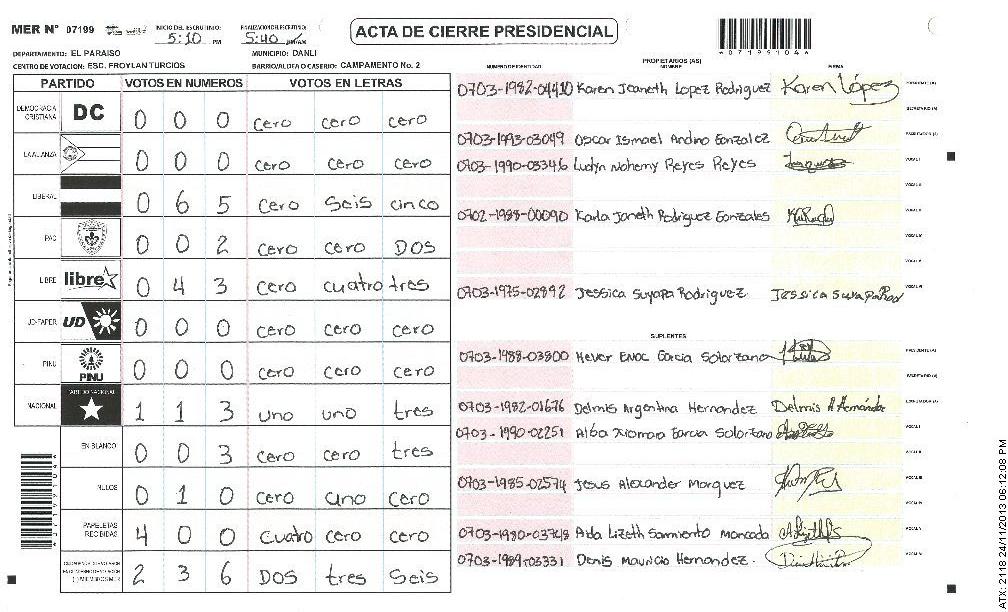 MER N° 07199 INICIO DEL ESCRUTINIO: 5:10 PM FINALIZACION DEL ESCRUTINIO: 5:40 ACTA DE CIERRE PRESIDENCIAL
071991044
DEPARTAMENTO: EL PARAISO MUNICIPIO: DANLI
CENTRO DE VOTACION: ESC. FROYLAN TURCIOS BARRIO/ALDEA O CASERIO: CAMPAMENTO No. 2
PROPIETARIOS (AS)
NUMERO DE IDENTIDAD NOMBRE FIRMA
PARTIDO VOTOS EN NUMEROS VOTOS EN LETRAS
DEMOCRACIA CRISTIANA DC 0 0 0 cero cero cero
LA ALIANZA 0 0 0 cero cero cero
LIBERAL 0 6 5 cero seis cinco
PAC 0 0 2 cero cero DOS
LIBRE libre 0 4 3 cero cuatro tres
UD-FAPER UD 0 0 0 cero cero cero
PINU PINU 0 0 0 cero cero cero
NACIONAL PARTIDO NACIONAL 1 1 3 uno uno tres
EN BLANCO 0 0 3 cero cero tres
NULOS 0 1 0 cero uno cero
PAPELETAS RECIBIDAS 4 0 0 cuatro cero cero
2 3 6 DOS tres seis
0703-1982-04410 Karen Jeaneth Lopez Rodriguez Karen López
0703-1993-03049 Oscar Ismael Andino Gonzalez
0703-1990-03346 Ludyn Nohemy Reyes Reyes
0702-1988-00090 Karla Janeth Rodriguez Gonzales
0703-1975-02892 Jessica Suyapa Rodriguez Jessica Suyapa Rod
SUPLENTES
0703-1988-03800 Hever Enoc Garcia Solorzano
0703-1982-01676 Delmis Argentina Hernandez Delmis A Hernández
0703-1990-02251 Alba Xiomara Garcia Solorzano
0703-1985-02574 Jesus Alexander Marquez
0703-1980-03748 Aida Lizeth Sarmiento Moncada
0703-1989-03331 Denis Mauricio Hernandez.
ATX: 2118 24/11/2013 06:12:08 PM